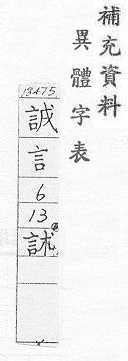 補充資料
異體字表
13475
誠
言
6
13
䚶